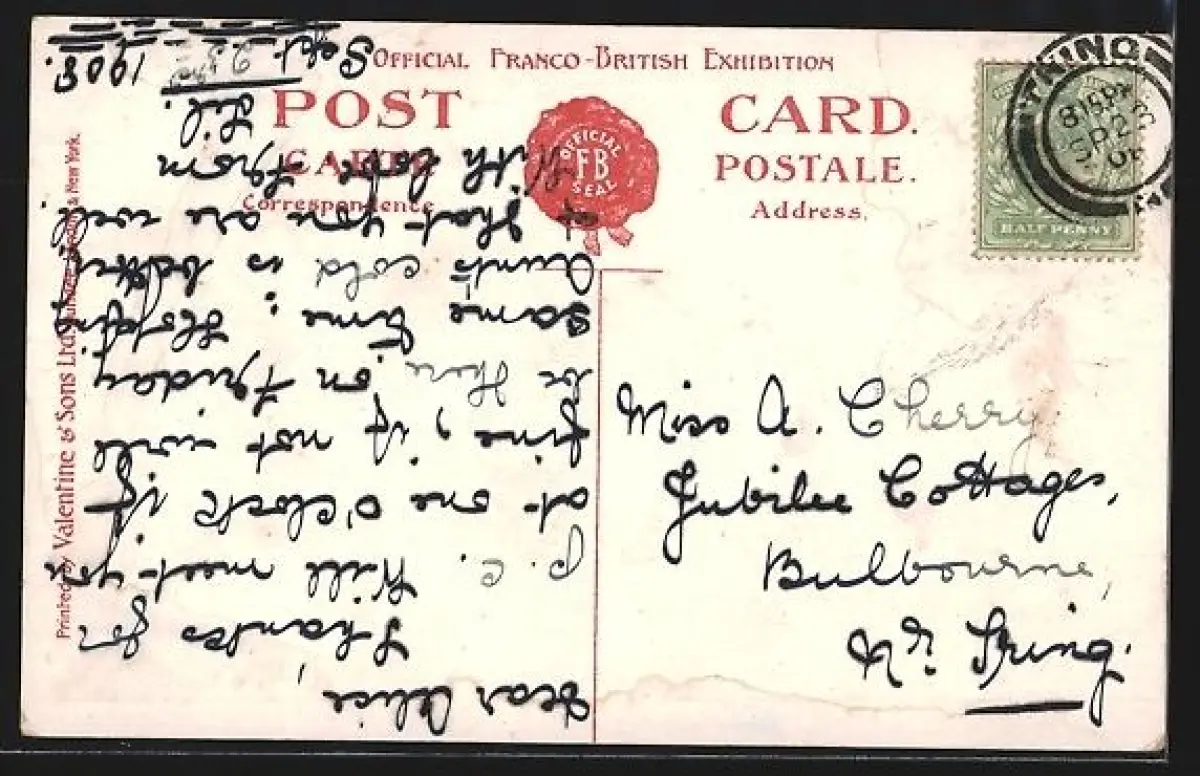 OFFICIAL FRANCO-BRITISH EXHIBITION
POST CARD.
CARTE POSTALE.
Correspondence
Address.
OFFICIAL
FB
SEAL
HALF PENNY
8 15 PM
SP 23
08
Printed by Valentine & Sons Ltd & New York.
Miss A. Cherry
Jubilee Cottages,
Bulbourne,
Nr. Tring.
Dear Alice,
Thanks for
p.c. Will meet you
at one o'clock if
fine, if not will
be there on Friday
same time. Hoping
Aunt's cold is better
& that you are well
With love from
Lil.
Sept. 23rd 1908.